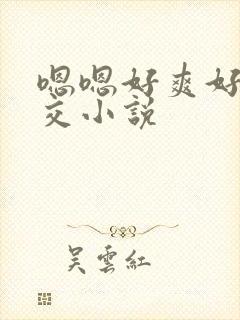 嗯嗯好爽好
交小説
吴雲紅